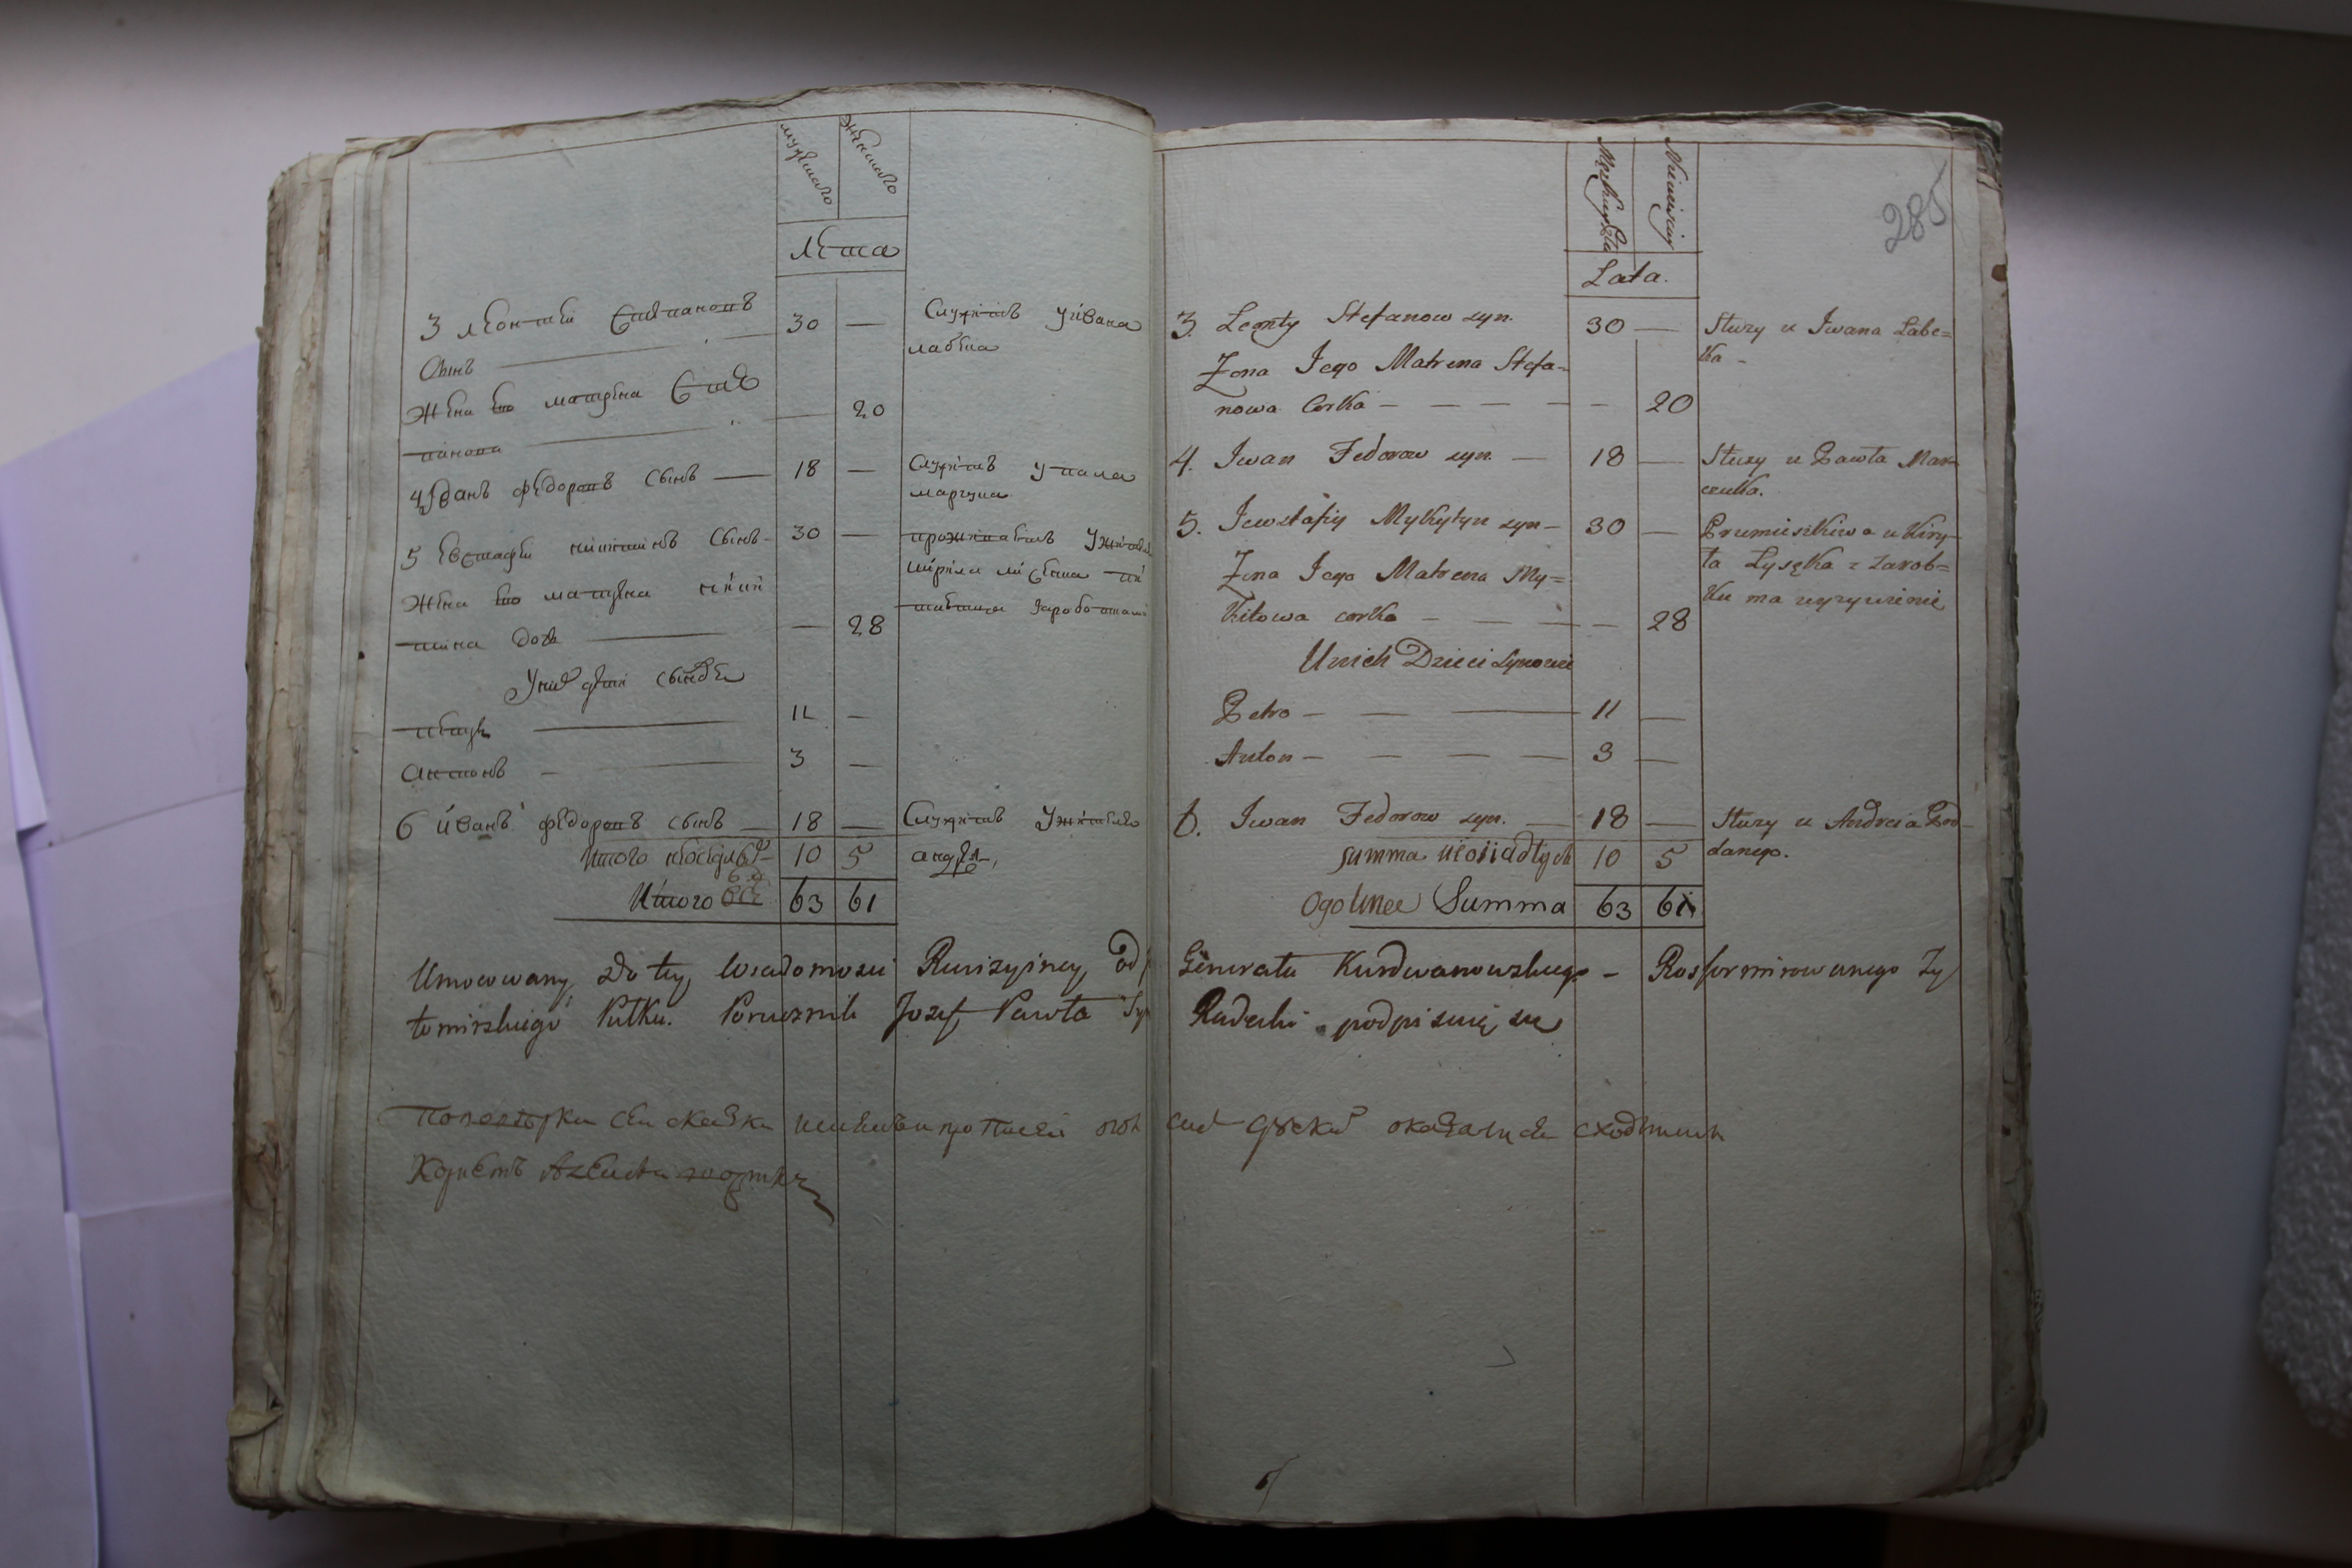 мужеского
женского
Лета
3 леонтей Степановъ
Сынъ
30 —
Служитъ у ивана
лабека
Жена его матрена Сте
панова
— 20
4 Иванъ федоровъ Сынъ — 18 —
Служитъ у павла
марчука
5 евстафей никитинъ Сынъ — 30 —
проживаетъ у жителя
кирила лисека пи
тается заработками
Жена его матрена ники
тина дочь — — 28
У них дети сыновья
петръ — 11 —
Антонъ — 3 —
6 иванъ федоровъ сынъ — 18 —
Служитъ у жителя
андрея
Итого 10 5
Итого всех 63 61
285
Męskiego
Lata.
3. Leonty Stefanow syn. 30 —
Słuzy u Iwana Labe=
ka —
Zona Jego Matrena Stefa=
nowa Corka — — — — — 20
4. Iwan Fedorow syn. — 18 —
Słuzy u Pawła Mar
czuka.
5. Jewstafiy Mykytyn syn — 30 —
Przmieszkiwa u Kiry—
ła Lysęka z zarob=
ku ma wyzywienie
Zona Jego Matrena My=
kitowa corka — — — — 28
U nich Dzieci synowie
Petro — — — 11 —
Anton — — — — 3 —
6. Iwan Fedorow syn. — 18 —
Słuzy u Andreia Pod
danego.
Summa nieosiadłych 10 5
Ogolnee Summa 63 61
Umocowany do tey Wiadomosci Rewizyiney od Generała Kurdwanowskiego — Rosformirowanego Zy
tomirskiego Pułku. Porucznik Jozef Pawła Syn Radecki podpisuię się
По поверки сея скаска оказалися сходными
Корнетъ